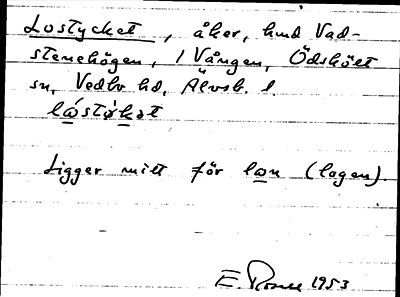 Lostycket, åker, hmd Vad-
stenehögen, 1 Vången, Ödskölt
sn, Vedbo hd, Älvsb. l.
Ligger mitt för (logen).
E. 1953